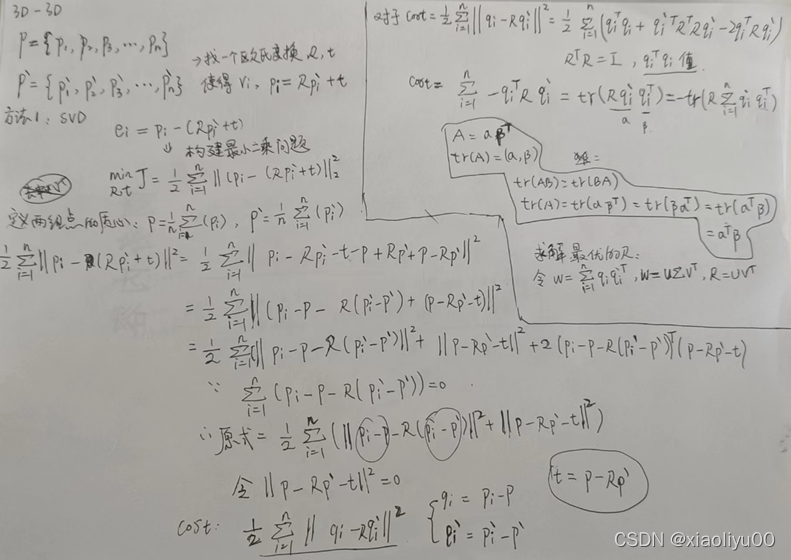 3D-3D
P = {p₁, p₂, p₃, ..., pₙ}
P' = {p₁', p₂', p₃', ..., pₙ'}
→找一个欧氏变换 R, t
使得 ∀i, pᵢ = Rpᵢ' + t
方法1: SVD
eᵢ = pᵢ - (Rpᵢ' + t)
↓ 构建最小二乘问题
min R,t J = 1/2 Σⁿᵢ₌₁ ||(pᵢ - (Rpᵢ' + t)||₂²
定义两组点的质心: p = 1/n Σⁿᵢ₌₁ (pᵢ), p' = 1/n Σⁿᵢ₌₁ (pᵢ')
1/2 Σⁿᵢ₌₁ ||pᵢ - (Rpᵢ' + t)||² = 1/2 Σⁿᵢ₌₁ || pᵢ - Rpᵢ' - t - p + Rp' + p - Rp' ||²
= 1/2 Σⁿᵢ₌₁ || (pᵢ - p - R(pᵢ' - p') + (p - Rp' - t) ||²
= 1/2 Σⁿᵢ₌₁ (|| pᵢ - p - R(pᵢ' - p')||² + || p - Rp' - t||² + 2(pᵢ - p - R(pᵢ' - p')ᵀ(p - Rp' - t)
∵ Σⁿᵢ₌₁ (pᵢ - p - R(pᵢ' - p')) = 0
∴ 原式 = 1/2 Σⁿᵢ₌₁ (|| pᵢ - p - R(pᵢ' - p')||² + || p - Rp' - t||²)
令 || p - Rp' - t||² = 0
t = p - Rp'
cost: 1/2 Σⁿᵢ₌₁ || qᵢ - Rqᵢ' ||²
{ qᵢ = pᵢ - p
qᵢ' = pᵢ' - p'
对于 cost = 1/2 Σⁿᵢ₌₁ || qᵢ - Rqᵢ' ||² = 1/2 Σⁿᵢ₌₁ (qᵢᵀqᵢ + qᵢ'ᵀRᵀRqᵢ' - 2qᵢᵀRqᵢ')
RᵀR = I, qᵢᵀqᵢ 值
cost = Σⁿᵢ₌₁ -qᵢᵀR qᵢ' = tr(Rqᵢ' qᵢᵀ) = -tr(R Σⁿᵢ₌₁ qᵢ' qᵢᵀ)
a β
A = aβᵀ
tr(A) = (a, β)
tr(AB) = tr(BA)
tr(A) = tr(aβᵀ) = tr(βaᵀ) = tr(aᵀβ)
= aᵀβ
求解最优的R:
令 W = Σⁿᵢ₌₁ qᵢqᵢ'ᵀ, W = UΣVᵀ, R = UVᵀ
CSDN @xiaoliyu00